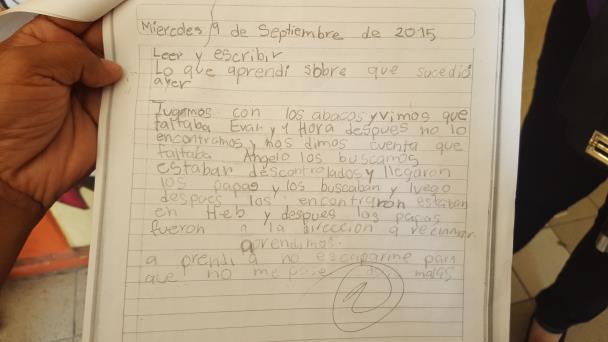 Miercoles 9 de Septiembre de 2015
Leer y escribir
Lo que aprendi sobre que sucedió
ayer
Jugamos con los abacos y vimos que
faltaba Evan y 1 Hora despues no lo
encontramos y nos dimos cuenta que
faltaba Angelo los buscamos
estaban descontrolados y llegaron
los papas y los buscaban y luego
despues los encontraron estaban
en Heb y despues los papas
fueron a la dirección a reclamar
aprendimos.
a prendi a no escaparme para
que no me pase malas